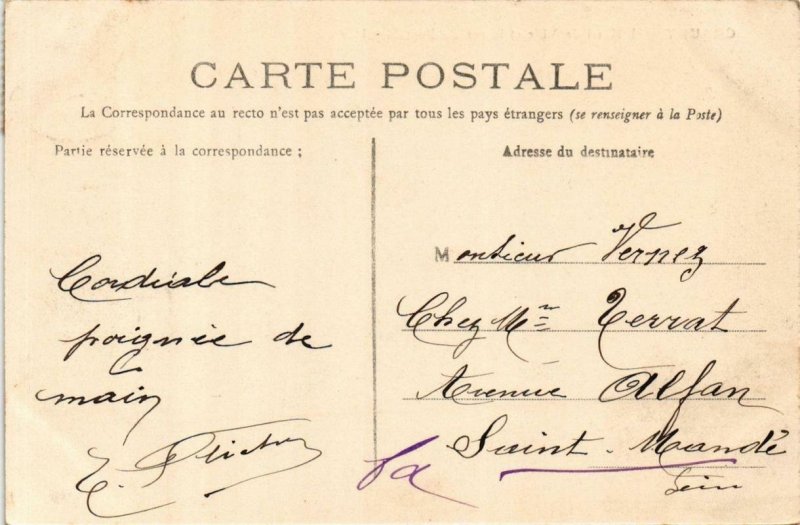 CARTE POSTALE
La Correspondance au recto n'est pas acceptée par tous les pays étrangers (se renseigner à la Poste)
Partie réservée à la correspondance ;
Cordiale
poignée de
main
Adresse du destinataire
Monsieur Vernez
Chez Mr Terrat
Avenue Alfan
Saint-Mandé
Seine